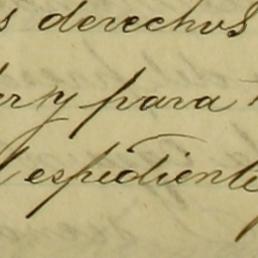 s derechos
er y para
l espediente